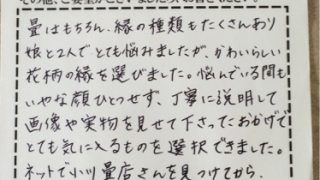 その他、ご要望がございましたら、お書きください。
畳はもちろん、縁の種類もたくさんあり
娘と2人でとても悩みましたが、かわいらしい
花柄の縁を選びました。悩んでいる間も
いやな顔ひとつせず、丁寧に説明して
画像や実物を見せて下さったおかげで
とても気に入るものを選択できました。
ネットで小川畳店さんを見つけてから、